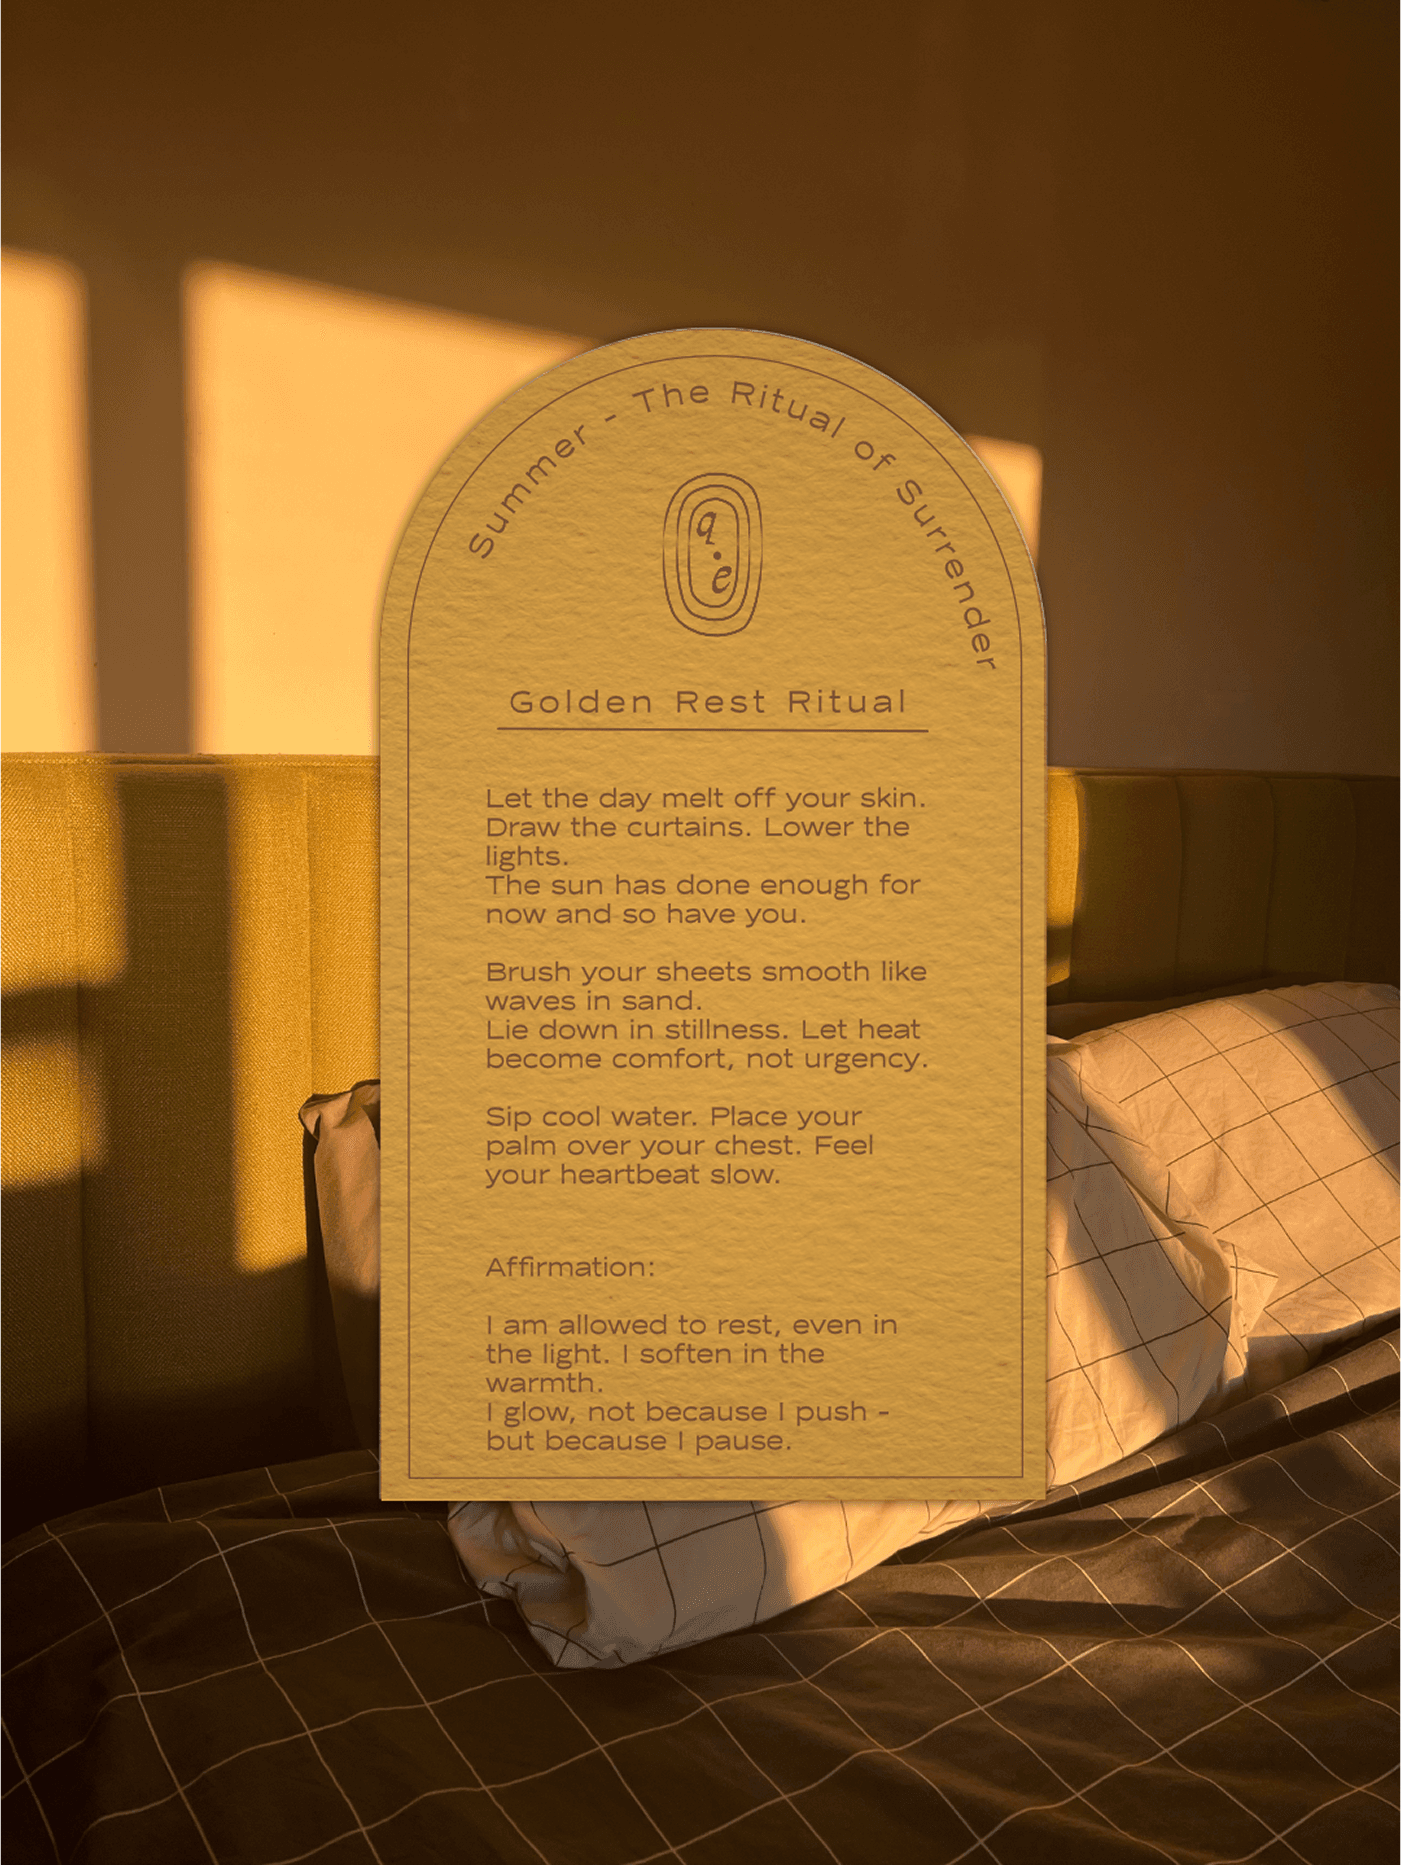 Summer - The Ritual of Surrender
q.e
Golden Rest Ritual
Let the day melt off your skin.
Draw the curtains. Lower the
lights.
The sun has done enough for
now and so have you.
Brush your sheets smooth like
waves in sand.
Lie down in stillness. Let heat
become comfort, not urgency.
Sip cool water. Place your
palm over your chest. Feel
your heartbeat slow.
Affirmation:
I am allowed to rest, even in
the light. I soften in the
warmth.
I glow, not because I push -
but because I pause.